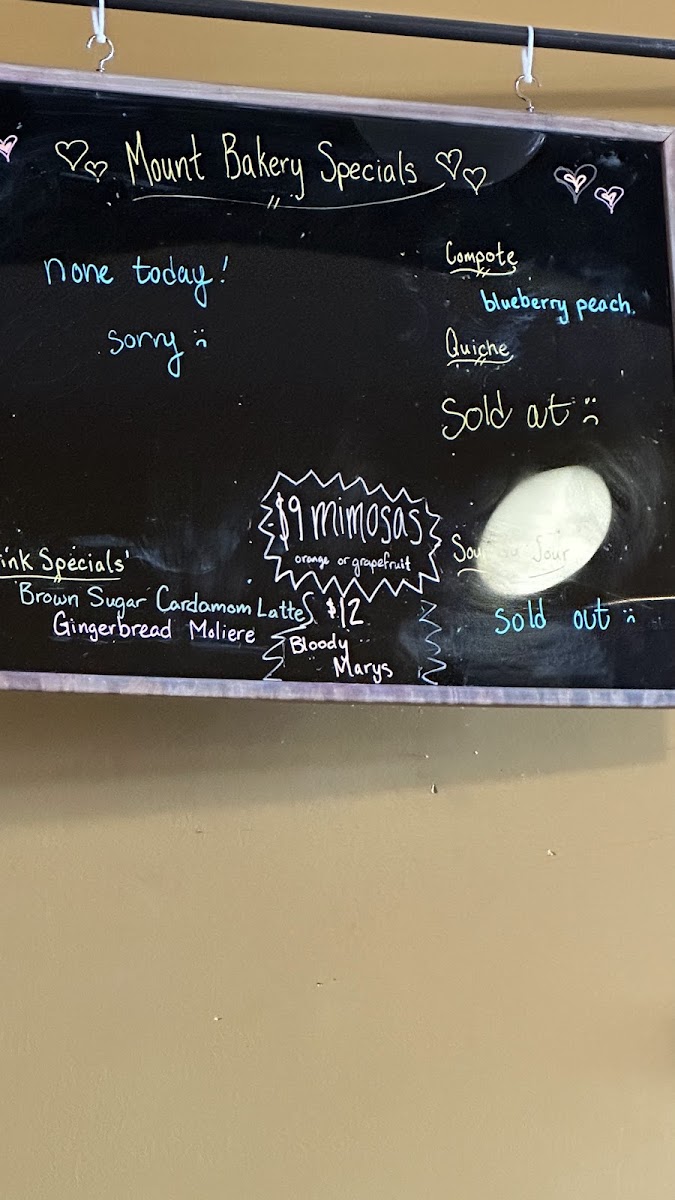 Mount Bakery Specials
none today!
sorry :(
Compote
blueberry peach.
Quiche
Sold out :(
$9 mimosas
orange or grapefruit
$12
Bloody
Marys
ink Specials'
Brown Sugar Cardamom Latte
Gingerbread Moliere
Jour
sold out :(